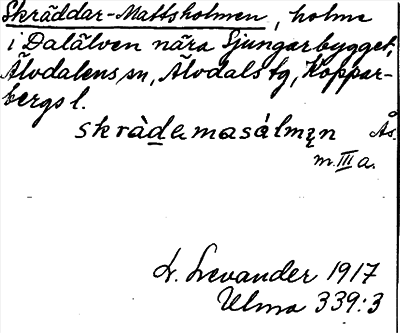 Skräddar-Mattsholmen, holme
i Dalälven nära Ljungarbygget,
Älvdalens sn, Älvdals tg, Koppar-
bergs l.
skràdamasálmęn Ås.
m. III a.
L. Levander 1917
Ulma 339:3